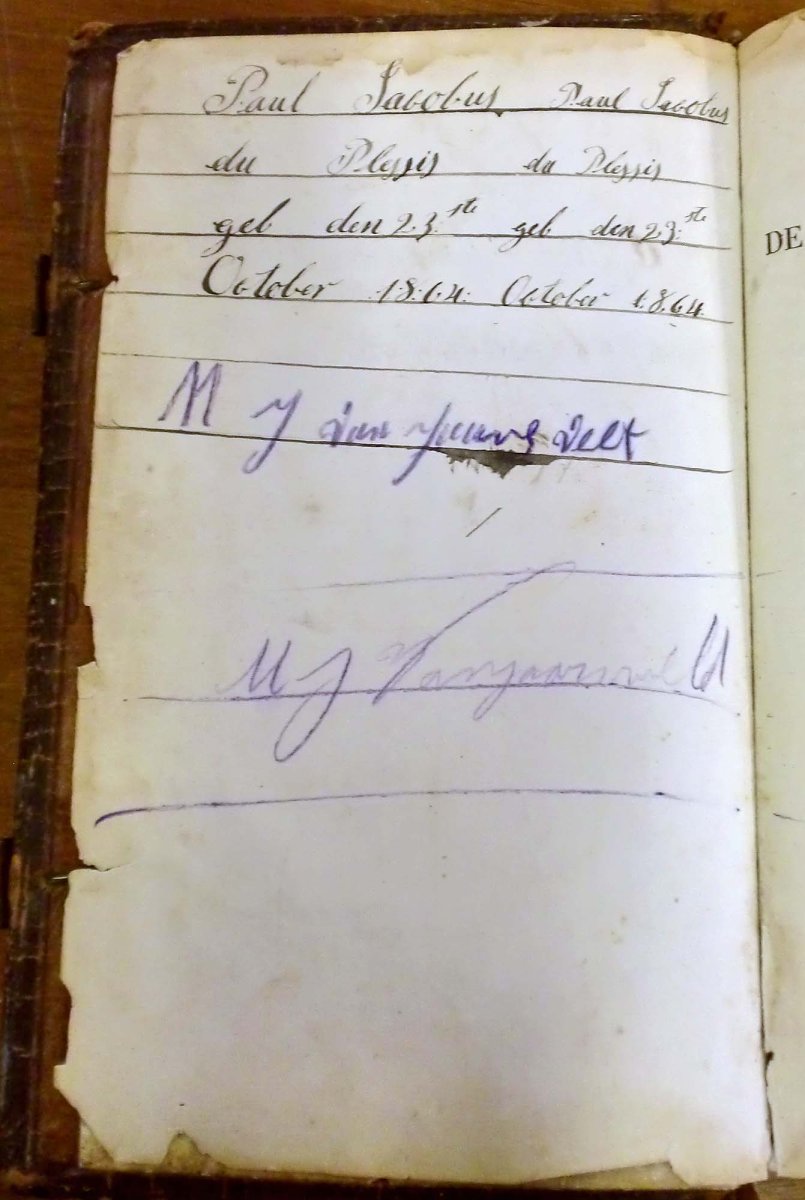 Paul Jacobus Paul Jacobus
du Plessis du Plessis
geb den 23.ste geb den 23.ste
October 1.8.6.4. October 1.8.6.4.
DE
M J van
M J Van